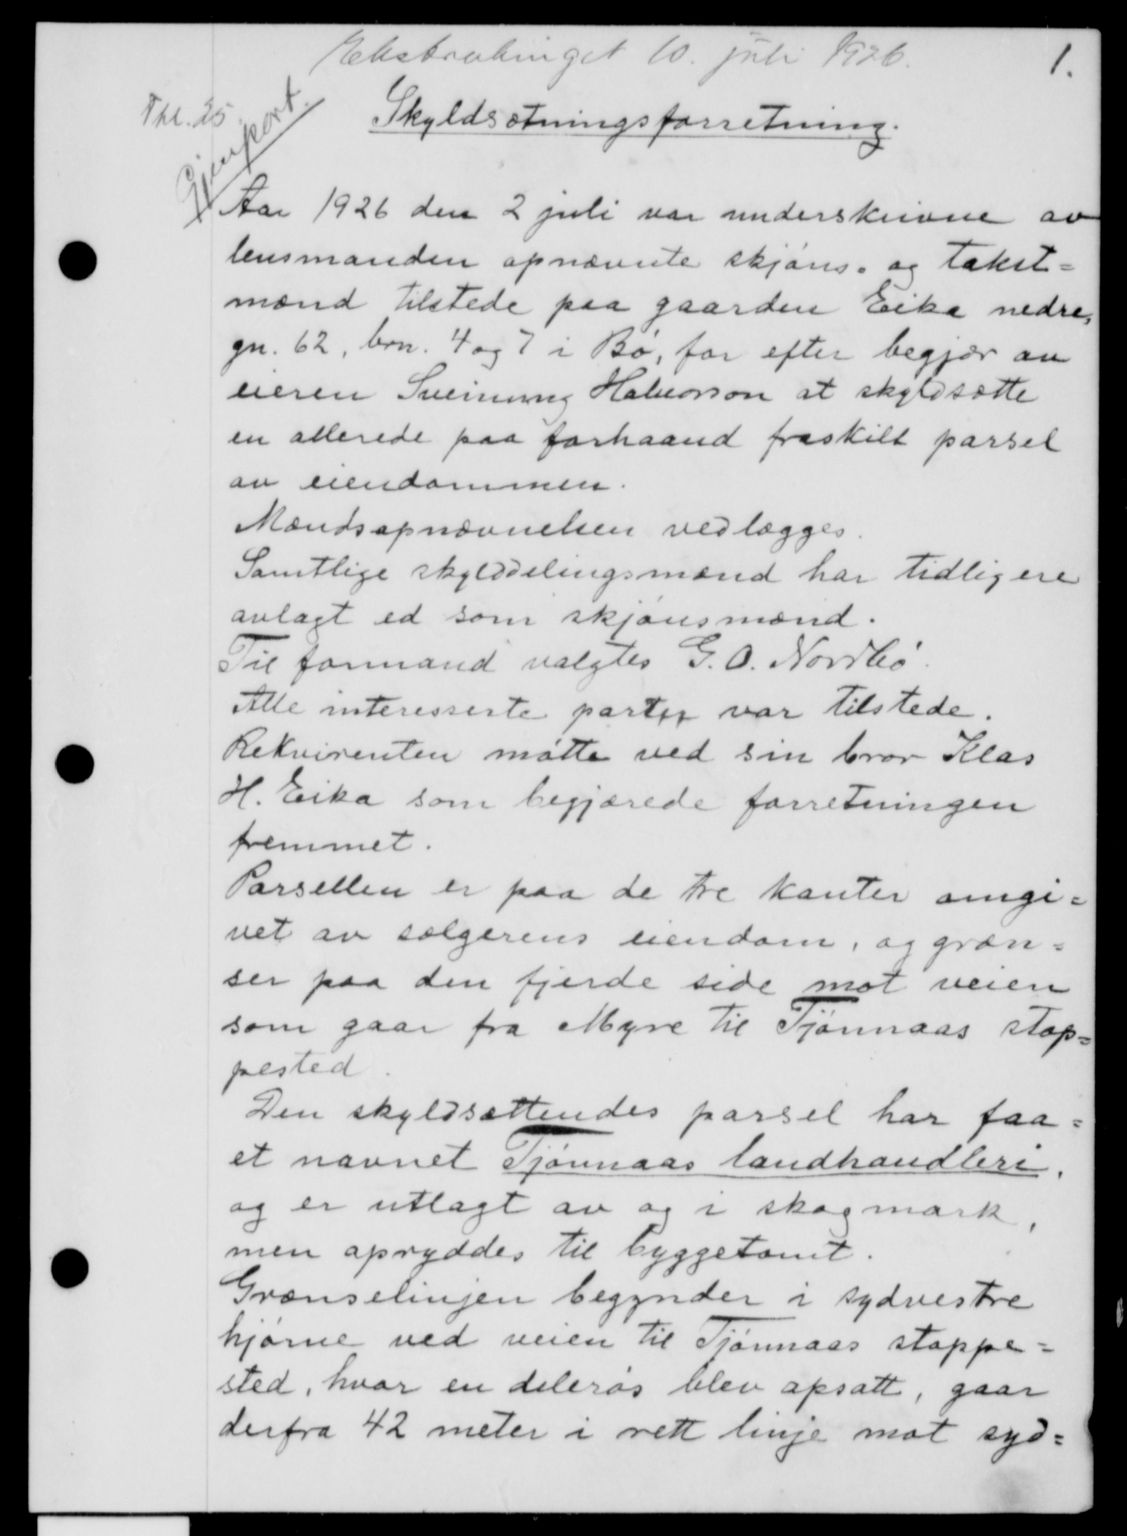 Ekstratinget 10. juli 1926.
1.
Thl. 25.
Gjenpart.
Skyldsætningsforretning.
Aar 1926 den 2 juli var underskrivne av
lensmanden opnævnte skjøns- og takst=
mænd tilstede paa gaarden Eika nedre,
gn. 62, brn. 4 og 7 i Bø, for efter begjær av
eieren Sveinung Halvorson at skyldsætte
en allerede paa forhaand fraskilt parsel
av eiendommen.
Mændsopnævnelsen vedlægges.
Samtlige skylddelingsmænd har tidligere
avlagt ed som skjønsmænd.
Til formand valgtes G. O. Nordbø.
Alle interesserte parter var tilstede.
Rekvirenten møtte ved sin bror Klas
H. Eika som begjærede forretningen
fremmet.
Parsellen er paa de tre kanter omgi=
vet av sælgerens eiendom, og græn=
ser paa den fjerde side mot veien
som gaar fra Myre til Tjønnaas stop=
pested.
Den skyldsættendes parsel har faa=
et navnet Tjønnaas landhandleri,
og er utlagt av og i skogmark,
men opryddes til byggetomt.
Grænselinjen begynder i sydvestre
hjørne ved veien til Tjønnaas stoppe=
sted, hvor en delerøs blev opsatt, gaar
derfra 42 meter i rett linje mot syd=